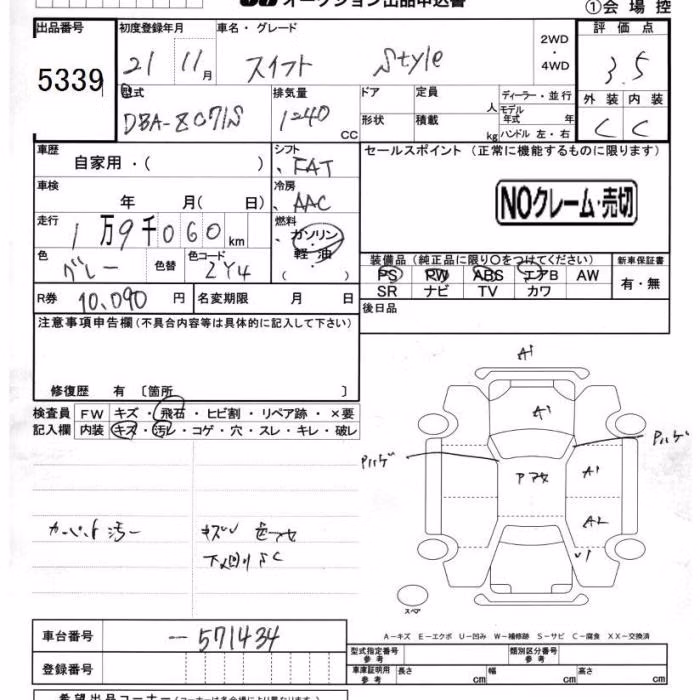 オークション出品申込書
①会場控
出品番号 初度登録年月 車名・グレード 評価点
5339 21 11月 スイフト Style 2WD・4WD 3.5
型式 排気量 ドア 定員 人 ディーラー・並行 外装 内装
モデル年式 年
DBA-ZC71S 1240 CC 形状 積載 kg ハンドル 左・右 C C
車歴 自家用・( ) シフト FAT セールスポイント(正常に機能するものに限ります)
車検 年 月(日) 冷房 AAC
NOクレーム・売切
走行 1万9千060km 燃料 ガソリン・軽油 ( )
色 グレー 色替 色コード ZY4
装備品(純正品に限り○をつけてください) 新車保証書
PS PW ABS エアB AW 有・無
SR ナビ TV カワ
R券 10,090円 名変期限 月 日 後日品
注意事項申告欄(不具合内容等は具体的に記入して下さい)
修復歴 有〔箇所 〕
検査員 FW キズ・飛石・ヒビ割・リペア跡・×要
記入欄 内装 キズ・汚レ・コゲ・穴・スレ・キレ・破レ
A1
A1
Pハゲ Pハゲ
A1
A2
U1
カーペット汚ー キズU 色アセ
下廻りSC
スペア
車台番号 -571434
A-キズ E-エクボ U-凹み W-補修跡 S-サビ C-腐食 XX-交換済
型式指定番号 参考 類別区分番号 参考
登録番号 車庫証明用 参考 長さ cm 幅 cm 高さ cm
希望出品コーナー